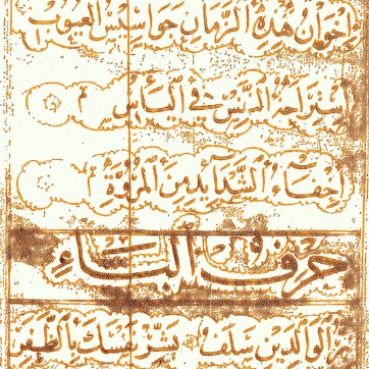 اِخْوَانُ هٰذِهِ الزَّمَانِ جَوَاسِيسُ الْعُيُوبِ
اِسْتِرَاحَةُ النَّفْسِ فِي الْيَأْسِ
اِخْفَاءُ الشَّدَايِدِ مِنَ الْمُرُوَّةِ
حرف الباء
بِرُّ الْوَالِدَيْنِ سَلَفٌ بَشِّرْ نَفْسَكَ بِالظَّفَرِ